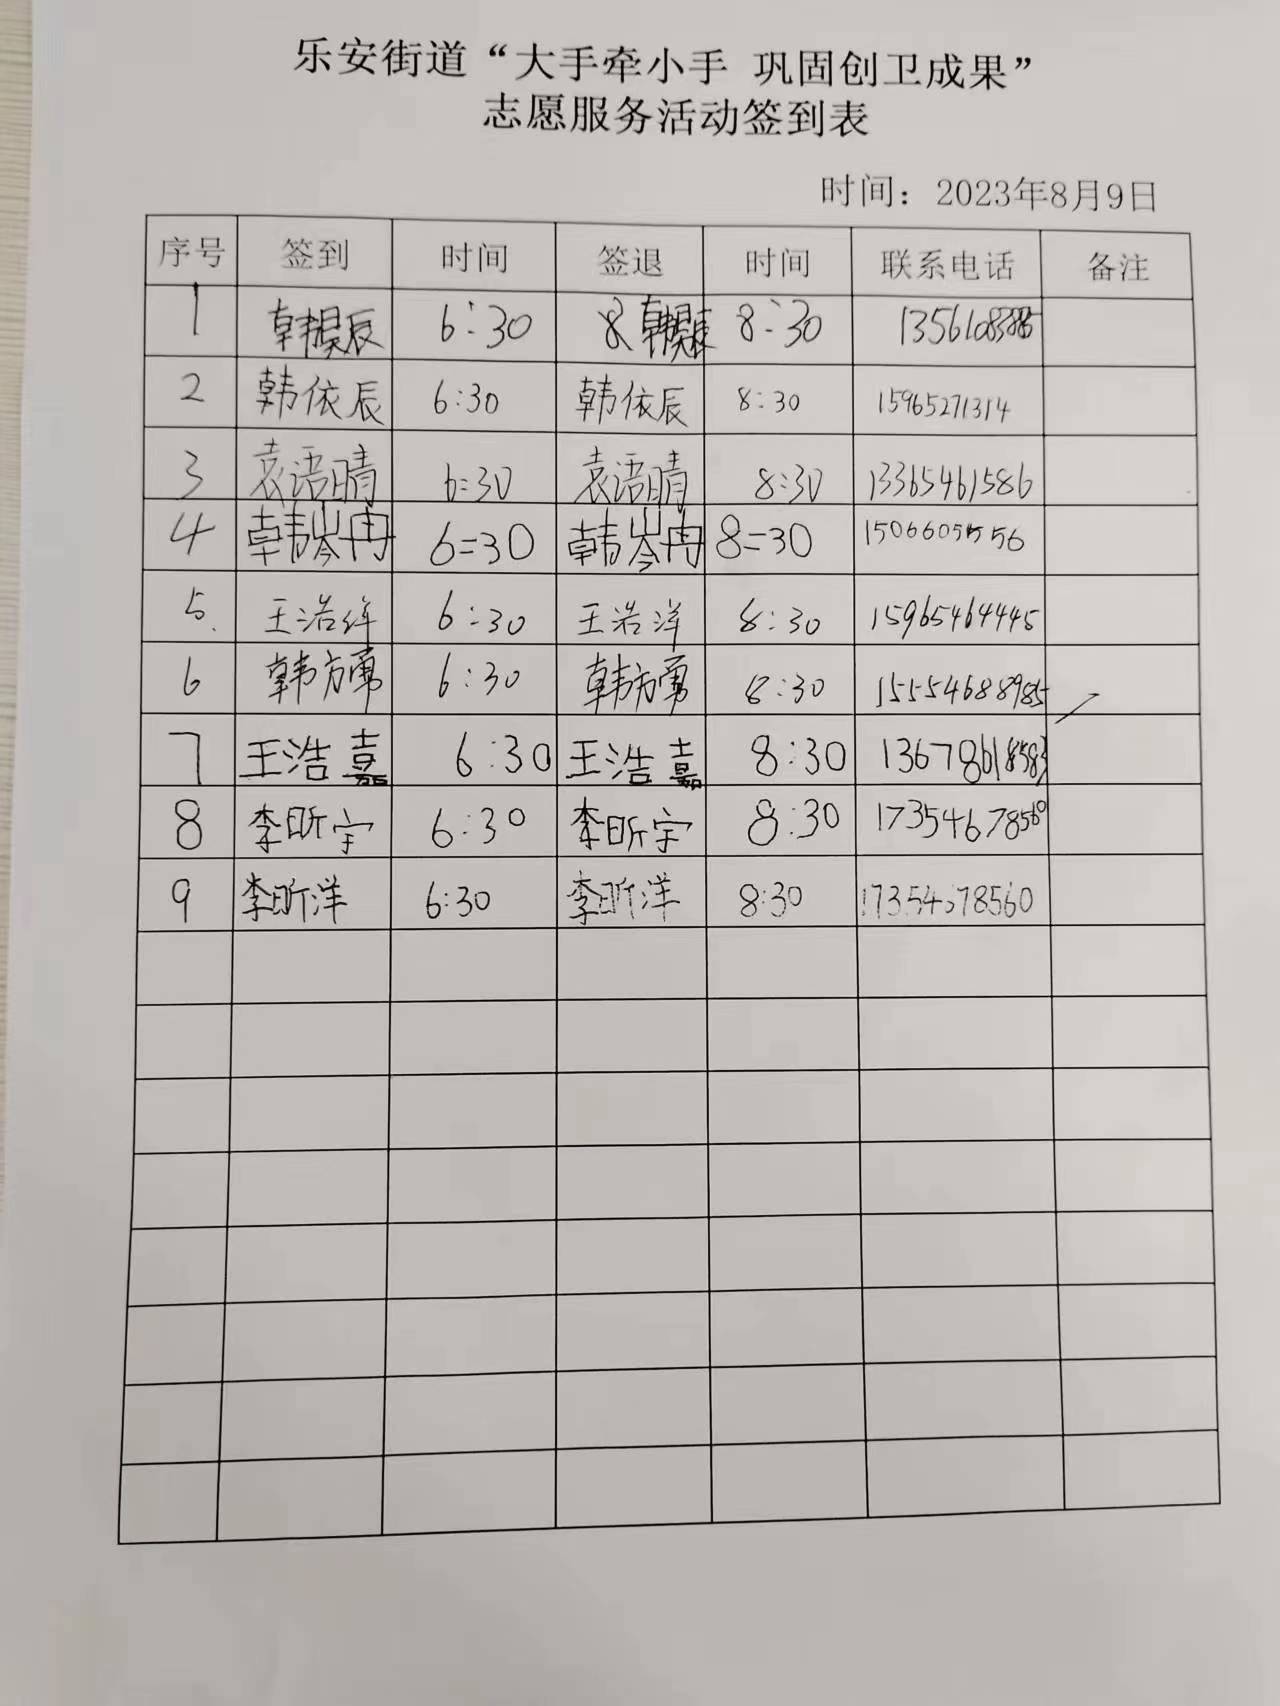 乐安街道“大手牵小手 巩固创卫成果”
志愿服务活动签到表
时间：2023年8月9日
序号 签到 时间 签退 时间 联系电话 备注
1 韩昊辰 6:30 韩昊辰 8:30
2 韩依辰 6:30 韩依辰 8:30 15965271314
3 袁语晴 6:30 袁语晴 8:30 13365461586
4 韩岑冉 6=30 韩岑冉 8=30
5. 王浩洋 6:30 王浩洋 8:30 15965464445
6 韩方勇 6:30 韩方勇 8:30 15554688985
7 王浩嘉 6:30 王浩嘉 8:30
8 李昕宇 6:30 李昕宇 8:30 17354678560
9 李昕洋 6:30 李昕洋 8:30